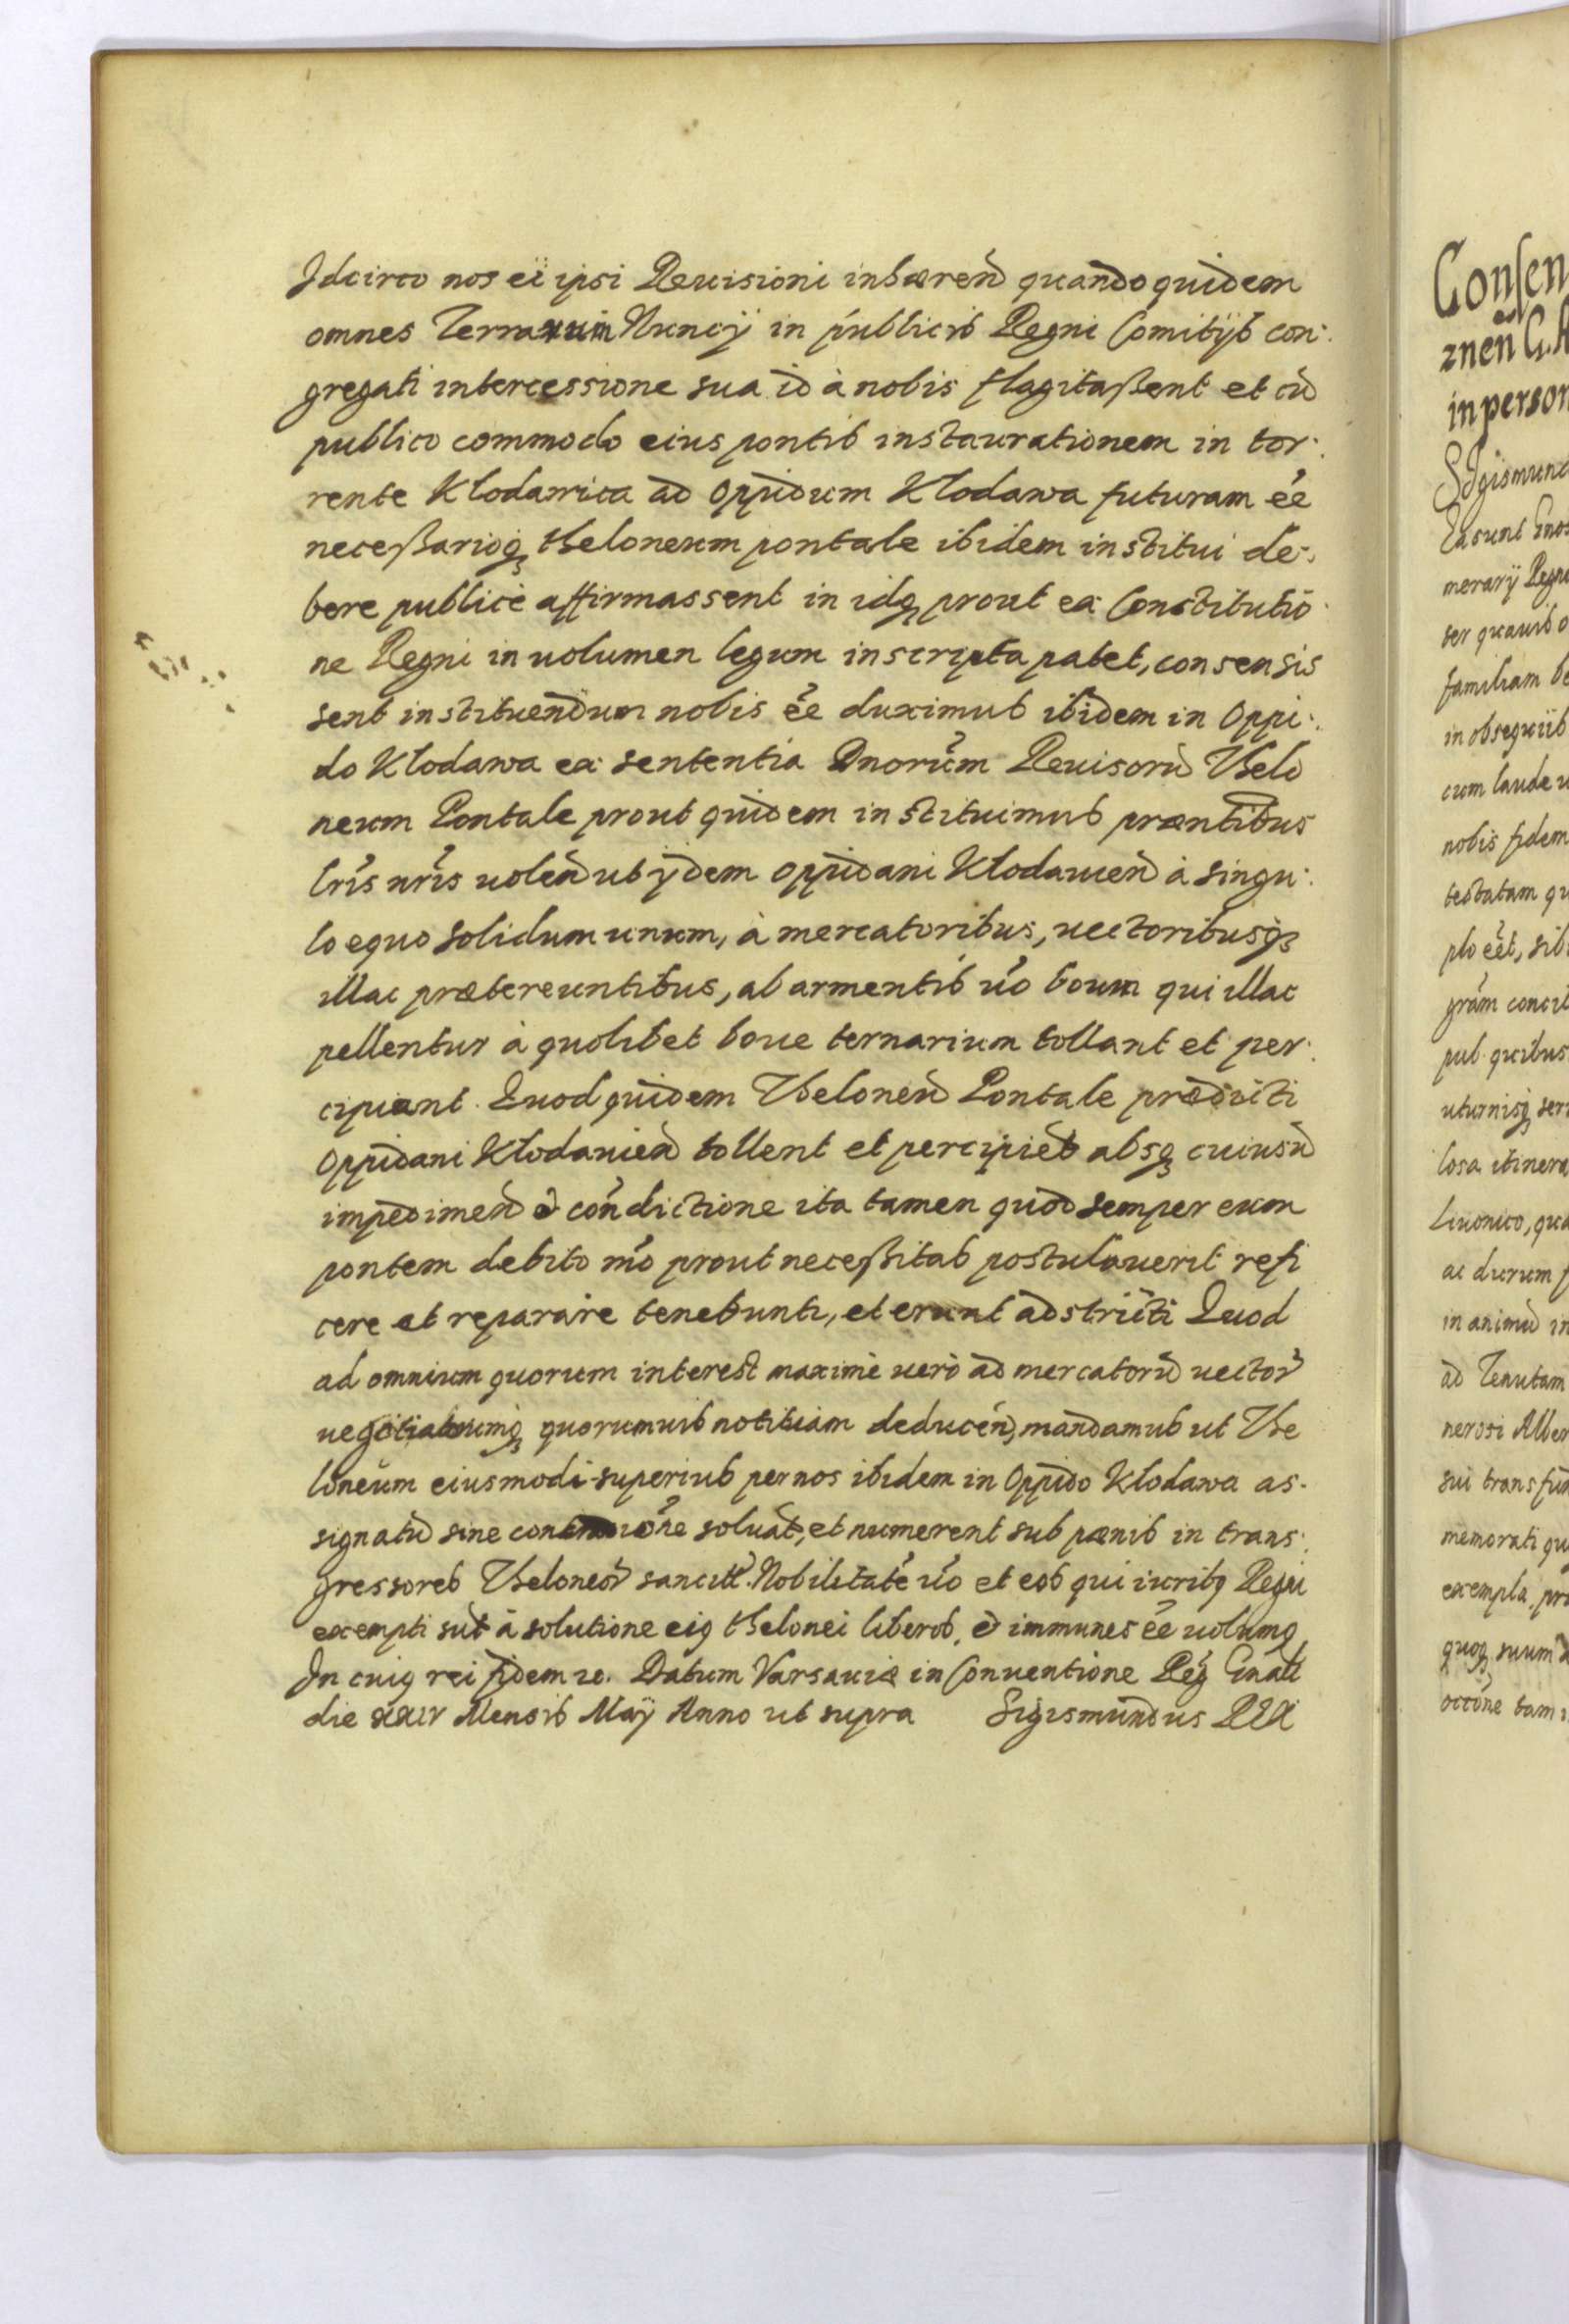 Idcirco nos ei ipsi Reuisioni inhærend quandoquidem
omnes Terrarum Nuncij in publicis Regni Comitijs con:
gregati intercessione sua id à nobis flagitaßent et cū
publico commodo eius pontis instaurationem in tor:
rente Klodawica ad Oppidum Klodawa futuram ēe
neceßarioq̨ theloneum pontale ibidem institui de:
bere publicè affirmassent in idq̨ prout ea Constitutio
ne Regni in uolumen legum inscripta patet, consensis
sent instituendum nobis ēe duximus ibidem in Oppi:
do Klodawa ea sententia Dnorum Reuisorū Thelo
neum Pontale prout quidem instituimus præntibus
lris nris uolen̄ ut ijdem oppidani Klodauien̄ à singu:
lo equo solidum unum, à mercatoribus, uectoribusq̨
illac prætereuntibus, ab armentis uo boum qui illac
pellentur à quolibet boue ternarium tollant et per:
cipiant. Quod quidem Theloneū Pontale prædicti
Oppidani Klodauien̄ tollent et percipiēt absq̨ cuiusū
impedimen̄ & condictione ita tamen quod semper eum
pontem debito mo prout neceßitas postulauerit refi
cere et reparare tenebunt, et erunt adstricti Quod
ad omnium quorum interest maximè uerò ad mercatorū uector̄
negotiatorumq̨ quorumuis notitiam deducen̄, mandamus ut The
loneum eiusmodi superius per nos ibidem in Oppido Klodawa as-
signatū sine soluāt, et numerent sub pænis in trans:
gressores Theloneor̄ sancitt. Nobilitate uo et eos qui iuribq Regni
exempti sūt à solutione eiq thelonei liberos, & immunes ēe uolumq
In cuiq rei fidem ec. Datum Varsauiæ in Conuentione Reg Gnāli
die xxiv Mensis Maij Anno ut supra Sigismundus REX
Consen
znen G. A
in person
Sigismund
merarij Regni
ser quauis o
familiam be
in obsequiis
cum laude
nobis fidem
testatam qu
plo eet, sib
gram concil
pub. quibus
uturnisq̨ ser
losa itinera
Liuonico, qua
ac durum f
in animū in
ad Tenutam
nerosi Alber
sui transfun
memorati qu
exempla, pro
quoq̨ suum